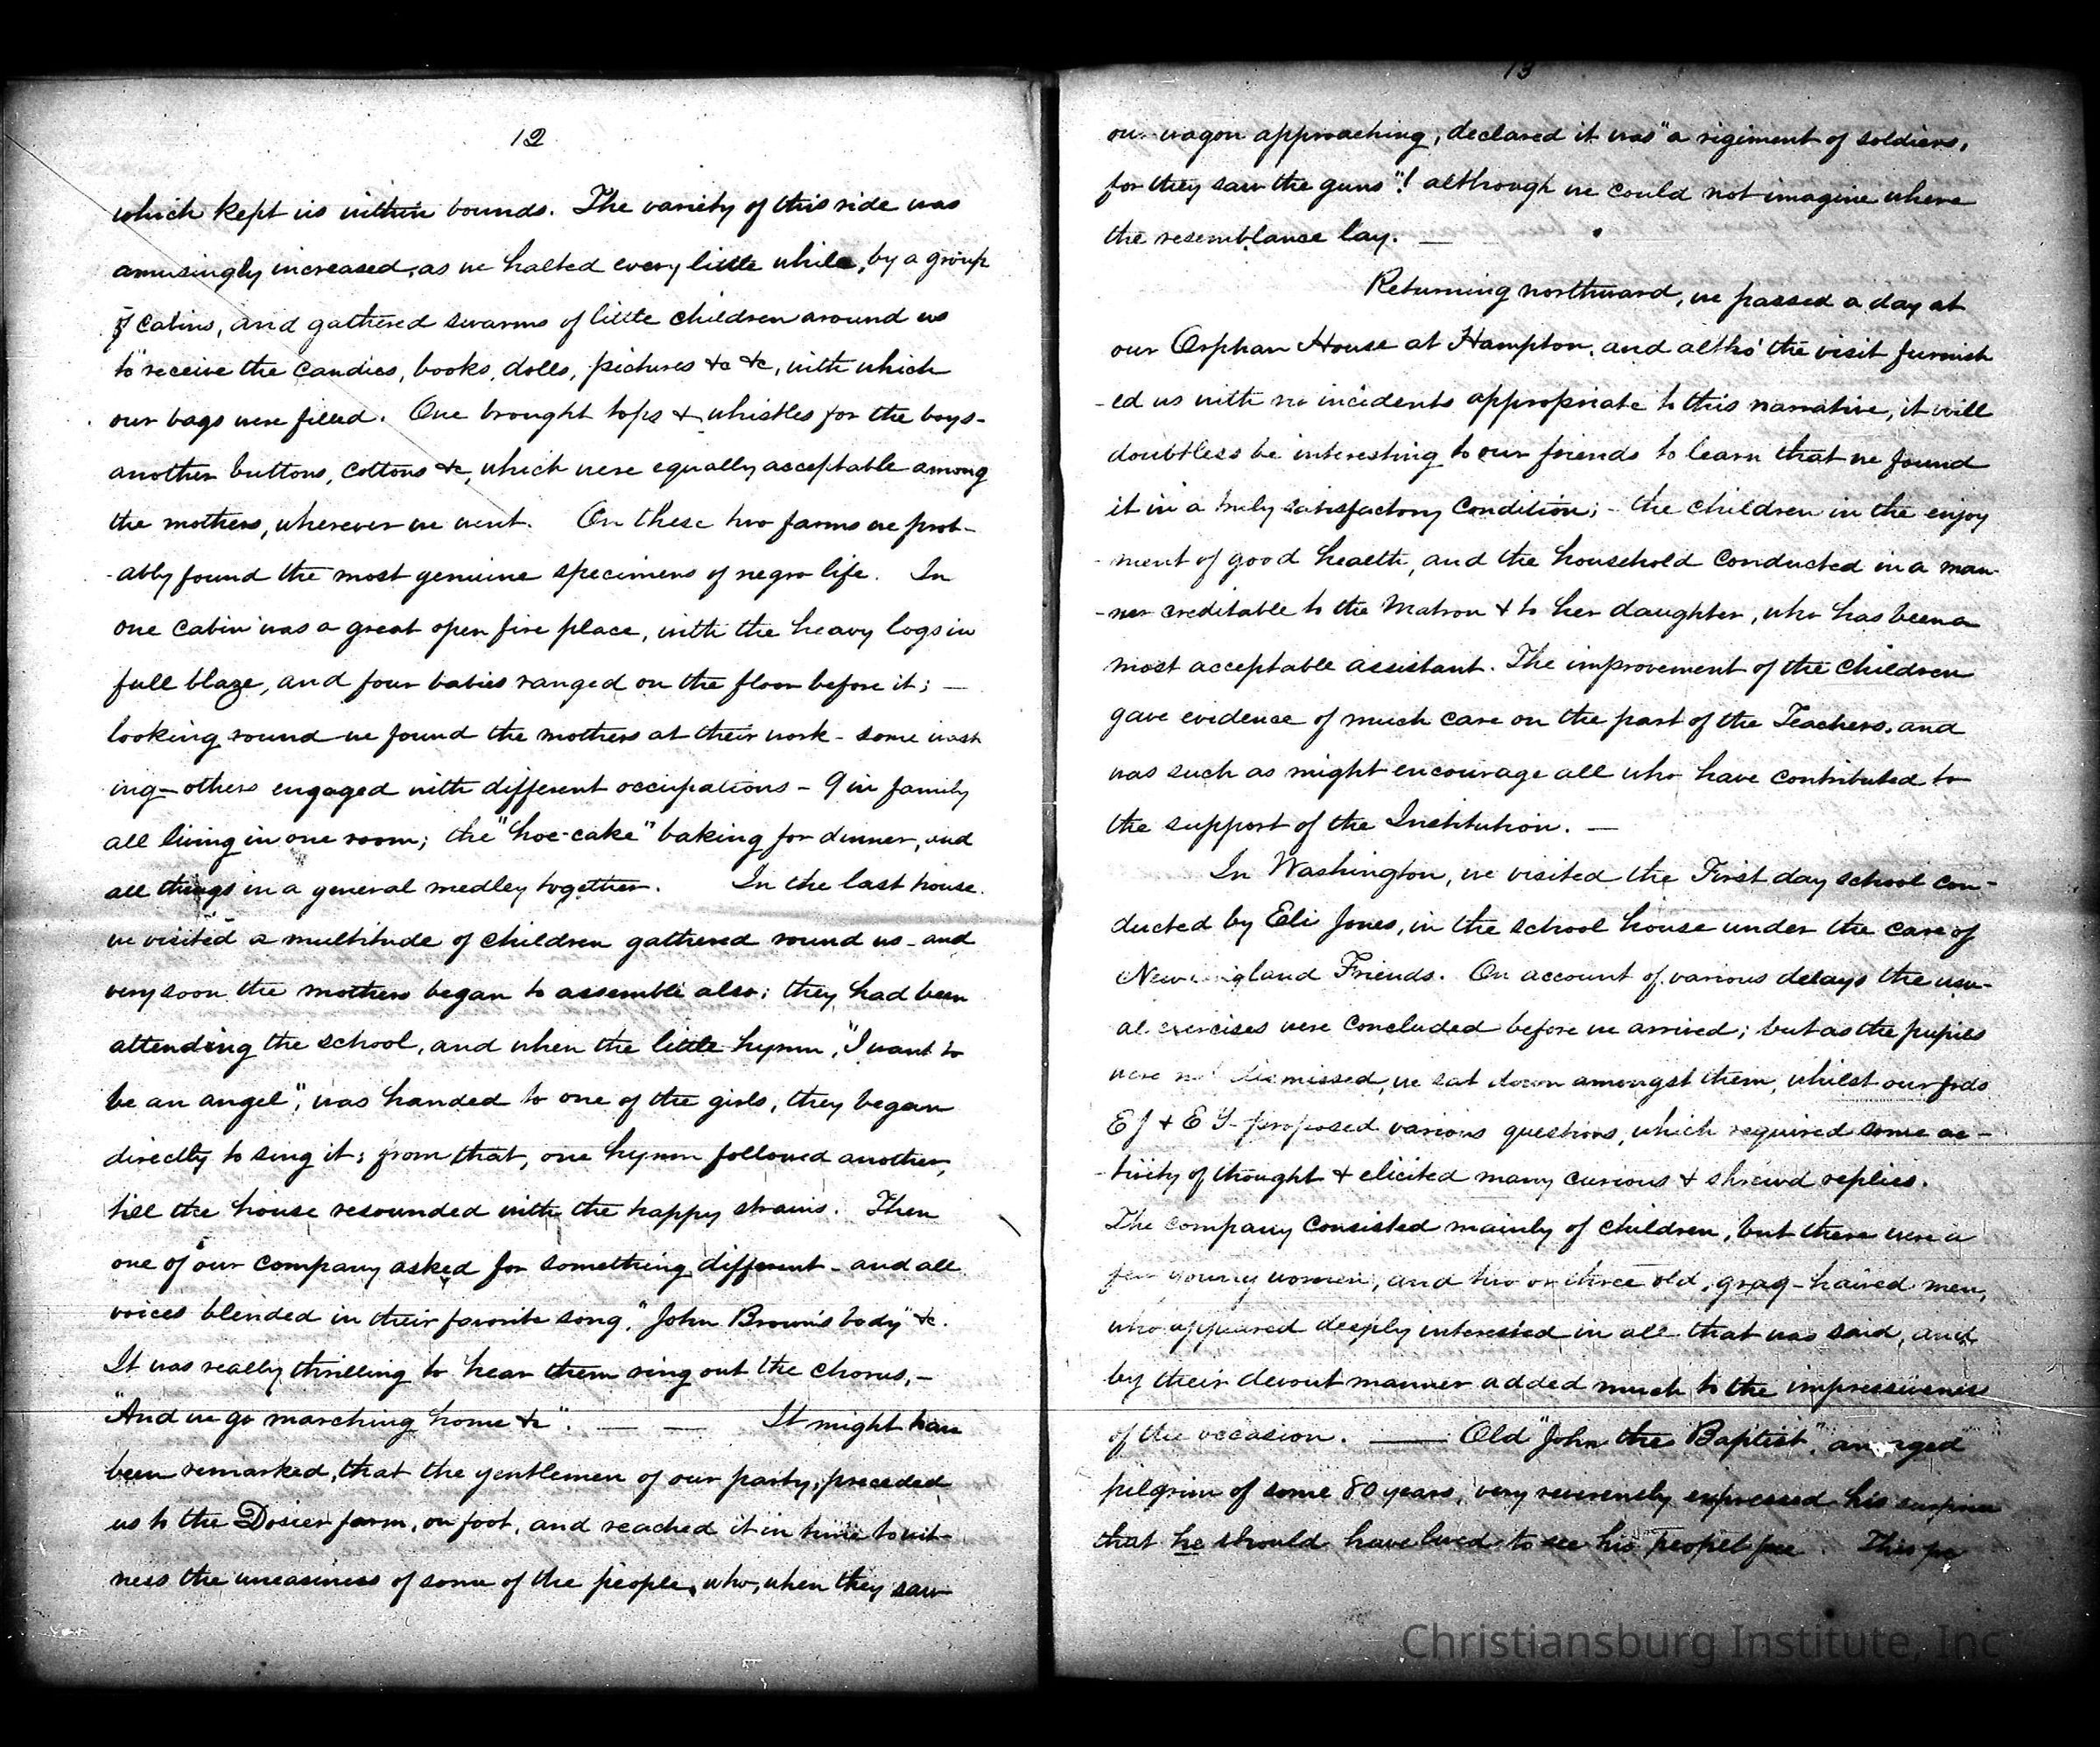 12
which kept us within bounds. The variety of this ride was
amusingly increased, as we halted every little while, by a group
of cabins, and gathered swarms of little children around us
to receive the candies, books, dolls, pictures &c &c, with which
our bags were filled. One brought tops & whistles for the boys-
another buttons, cottons &c, which were equally acceptable among
the mothers, wherever we went. On these two farms we prob-
-ably found the most genuine specimens of negro life. In
one cabin was a great open fire place, with the heavy logs in
full blaze, and four babies ranged on the floor before it; —
looking round we found the mothers at their work - some wash
ing - others engaged with different occupations - 9 in family
all living in one room; the "hoe-cake" baking for dinner, and
all things in a general medley together. In the last house
we visited a multitude of children gathered round us - and
very soon the mothers began to assemble also; they had been
attending the school, and when the little hymn, "I want to
be an angel", was handed to one of the girls, they began
directly to sing it; from that, one hymn followed another,
till the house resounded with the happy strains. Then
one of our company asked for something different - and all
voices blended in their favorite song, "John Brown's body" &c.
It was really thrilling to hear them ring out the chorus, -
"And we go marching home &c". — — It might have
been remarked, that the gentlemen of our party, preceded
us to the Dosier farm, on foot, and reached it in time to wit-
ness the uneasiness of some of the people, who, when they saw
13
our wagon approaching, declared it was "a rigiment of soldiers,
for they saw the guns"! although we could not imagine where
the resemblance lay. —
Returning northward, we passed a day at
our Orphan House at Hampton, and altho' the visit furnish
-ed us with no incidents appropriate to this narrative, it will
doubtless be interesting to our friends to learn that we found
it in a truly satisfactory condition; - the children in the enjoy
-ment of good health, and the household conducted in a man-
-ner creditable to the Matron & to her daughter, who has been a
most acceptable assistant. The improvement of the children
gave evidence of much care on the part of the Teachers, and
was such as might encourage all who have contributed to
the support of the Institution. —
In Washington, we visited the First day school con-
ducted by Eli Jones, in the school house under the care of
New England Friends. On account of various delays the usu-
al exercises were concluded before we arrived; but as the pupils
were not dismissed, we sat down amongst them, whilst our frds
EJ & EY proposed various questions, which required some ac-
-tivity of thought & elicited many curious & shrewd replies.
The company consisted mainly of children, but there were a
few young women, and two or three old, gray-haired men,
who appeared deeply interested in all that was said, and
by their devout manner added much to the impressiveness
of the occasion. — Old "John the Baptist", an aged
pilgrim of some 80 years, very reverently expressed his surprise
that he should have lived to see his peopel free. This
Christiansburg Institute, Inc